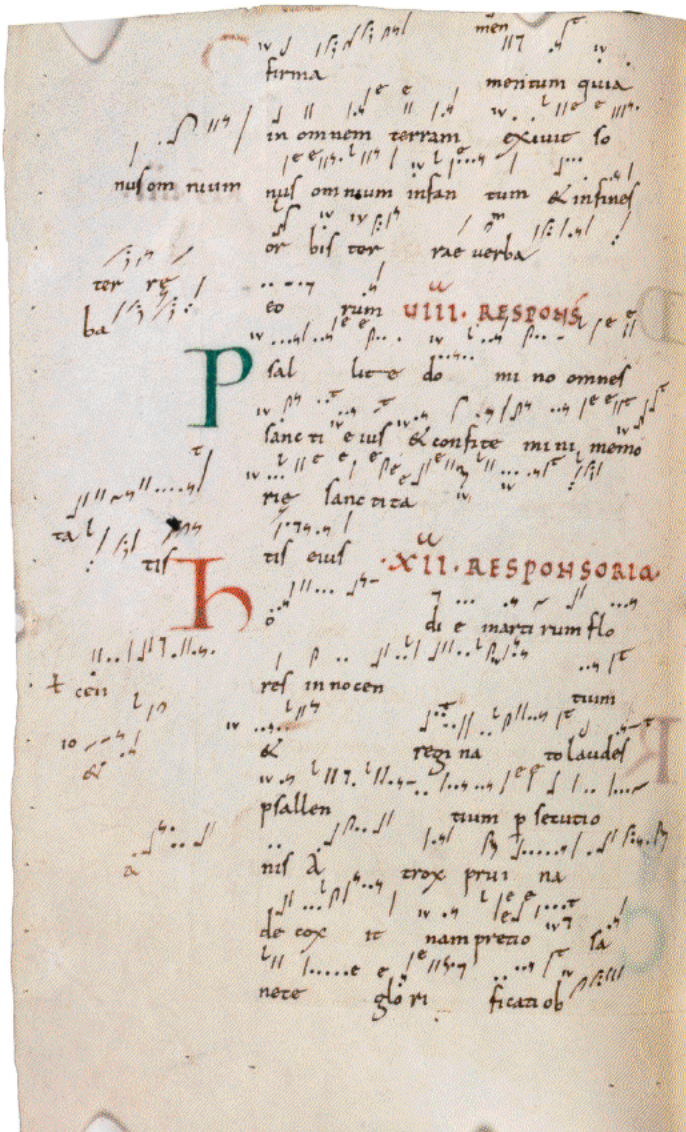 men
firma mentum quia
in omnem terram exiuit so
nus om nium nus omnium infan tum & infines
or bis ter rae uerba
ter re
ba eo rum UIIII. RESPONS
Psal lite do mi no omnes
sancti eius & confite mini memo
rie sanctita
ta
tis tis eius XII. RESPONSORIA
ho di e martirum flo
cen res innocen tium
& & regina to laudes
psallen tium psecutio
a nis A trox prui na
de cox it nam pretio sa
nete glori ficatiob